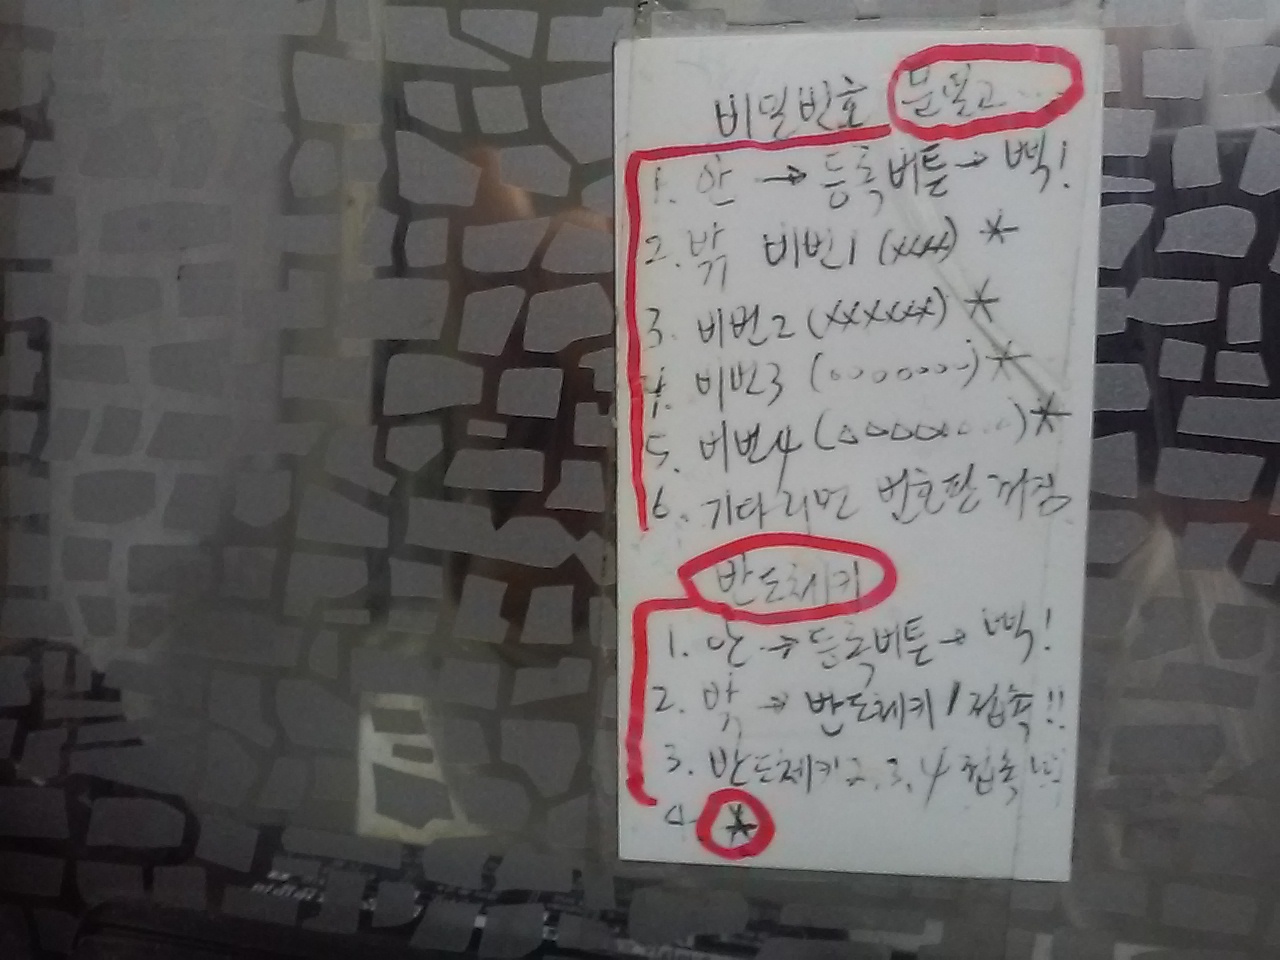 비밀번호 문열고
1. 안 → 등록버튼 → 삑!
2. 밖 비번1 (xxxx) *
3. 비번2 (xxxxxx) *
4. 비번3 (ooooooo) *
5. 비번4 (△△△△) *
6. 기다리면 번호판 꺼짐
반도체키
1. 안 → 등록버튼 → 삑!
2. 밖 → 반도체키1접촉!!
3. 반도체키2,3,4 접촉
4. *